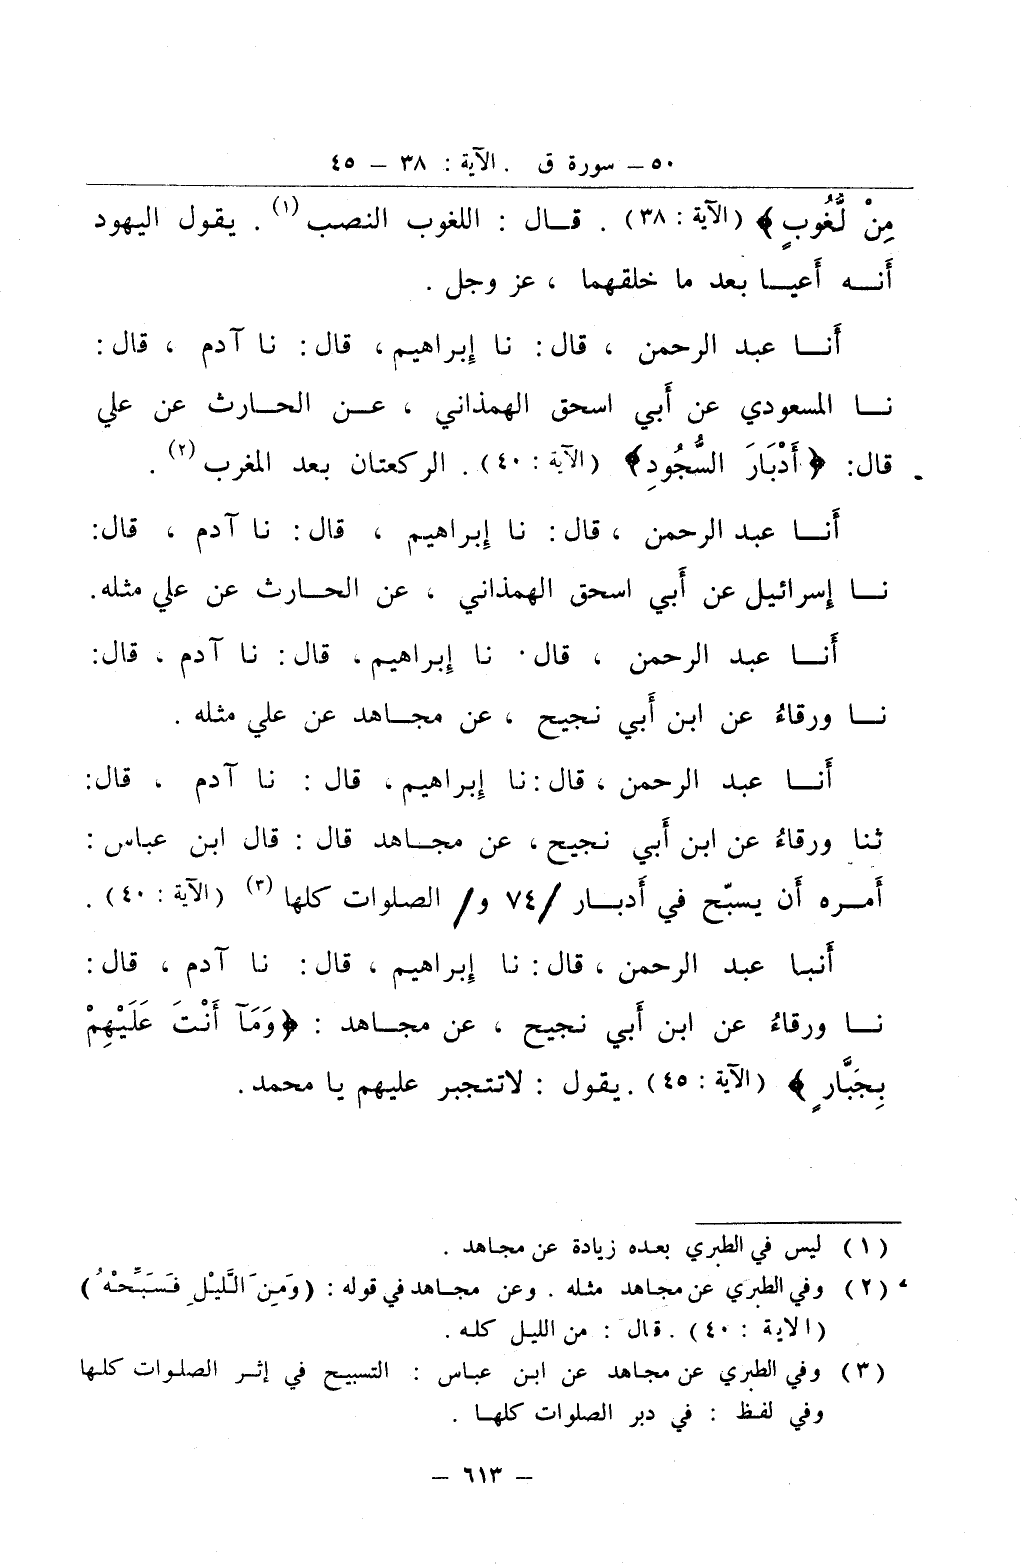 ٥٠ – سورة ق . الآية : ٣٨ – ٤٥
مِنْ لُّغُوبٍ﴾ (الآية : ٣٨) . قــال : اللغوب النصب (١) . يقول اليهود
أَنــه أَعيــا بعد ما خلقهما ، عز وجل .
أَنــا عبد الرحمن ، قال : نا إبراهيم ، قال : نا آدم ، قال :
نــا المسعودي عن أَبي اسحق الهمذاني ، عــن الحــارث عن علي
قال : ﴿أَدْبَارَ السُّجُودِ﴾ (الآية : ٤٠) . الركعتان بعد المغرب (٢) .
أَنــا عبد الرحمن ، قال : نا إبراهيم ، قال : نا آدم ، قال :
نــا إسرائيل عن أَبي اسحق الهمذاني ، عن الحــارث عن علي مثله .
أَنــا عبد الرحمن ، قال · نا إبراهيم ، قال : نا آدم ، قال :
نــا ورقاءُ عن ابن أَبي نجيح ، عن مجــاهد عن علي مثله .
أَنــا عبد الرحمن ، قال : نا إبراهيم ، قال : نا آدم ، قال :
ثنا ورقاءُ عن ابن أَبي نجيح ، عن مجــاهد قال : قال ابن عباس :
أَمــره أَن يسبّح في أَدبــار /٧٤ و/ الصلوات كلها (٣) (الآية : ٤٠) .
أَنبا عبد الرحمن ، قال : نا إبراهيم ، قال : نا آدم ، قال :
نــا ورقاءُ عن ابن أَبي نجيح ، عن مجــاهد : ﴿وَمَآ أَنْتَ عَلَيْهِمْ
بِجَبَّارٍ﴾ (الآية : ٤٥) . يقول : لاتتجبر عليهم يا محمد .
(١) ليس في الطبري بعده زيادة عن مجاهد .
(٢) وفي الطبري عن مجاهد مثله . وعن مجــاهد في قوله : (وَمِنَ الَّلَيْلِ فَسَبِّحْهُ)
(الاية : ٤٠) . قال : من الليل كله .
(٣) وفي الطبري عن مجاهد عن ابن عباس : التسبيح في إثر الصلوات كلها
وفي لفظ : في دبر الصلوات كلهــا .
– ٦١٣ –